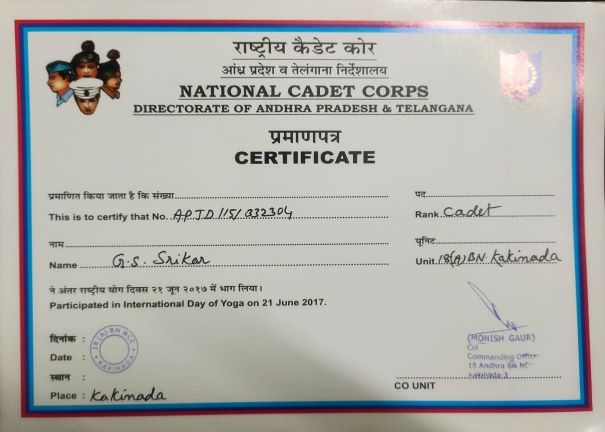 राष्ट्रीय कैडेट कोर
आंध्र प्रदेश व तेलंगाना निर्देशालय
NATIONAL CADET CORPS
DIRECTORATE OF ANDHRA PRADESH & TELANGANA
प्रमाणपत्र
CERTIFICATE
प्रमाणित किया जाता है कि संख्या
पद
This is to certify that No. APJD/15/932304
Rank Cadet
नाम
यूनिट
Name G.S. Srikar
Unit 18(A)BN. Kakinada
ने अंतर राष्ट्रीय योग दिवस २१ जून २०१७ में भाग लिया।
Participated in International Day of Yoga on 21 June 2017.
दिनांक :
Date :
18 (A) BN NCC KAKINADA
स्थान :
Place : Kakinada
(MONISH GAUR)
Col
Commanding Officer
18 Andhra BN NCC
Kakinada-3
CO UNIT